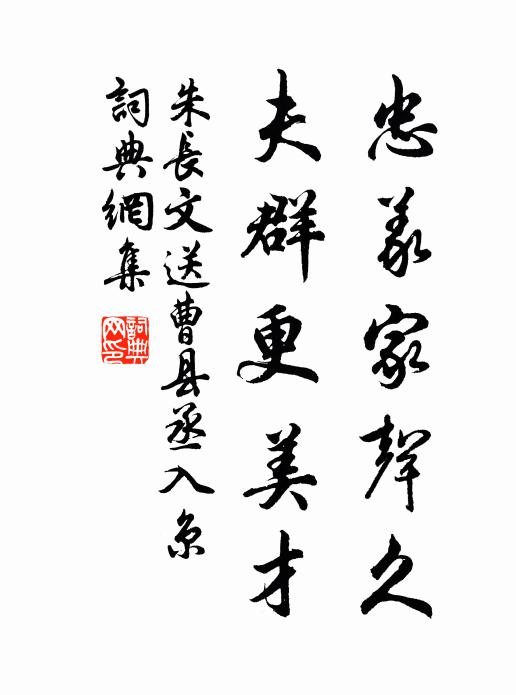 忠義家聲久
夫群更美才
朱長文送曹县丞入京
詞典網集
詞典網印